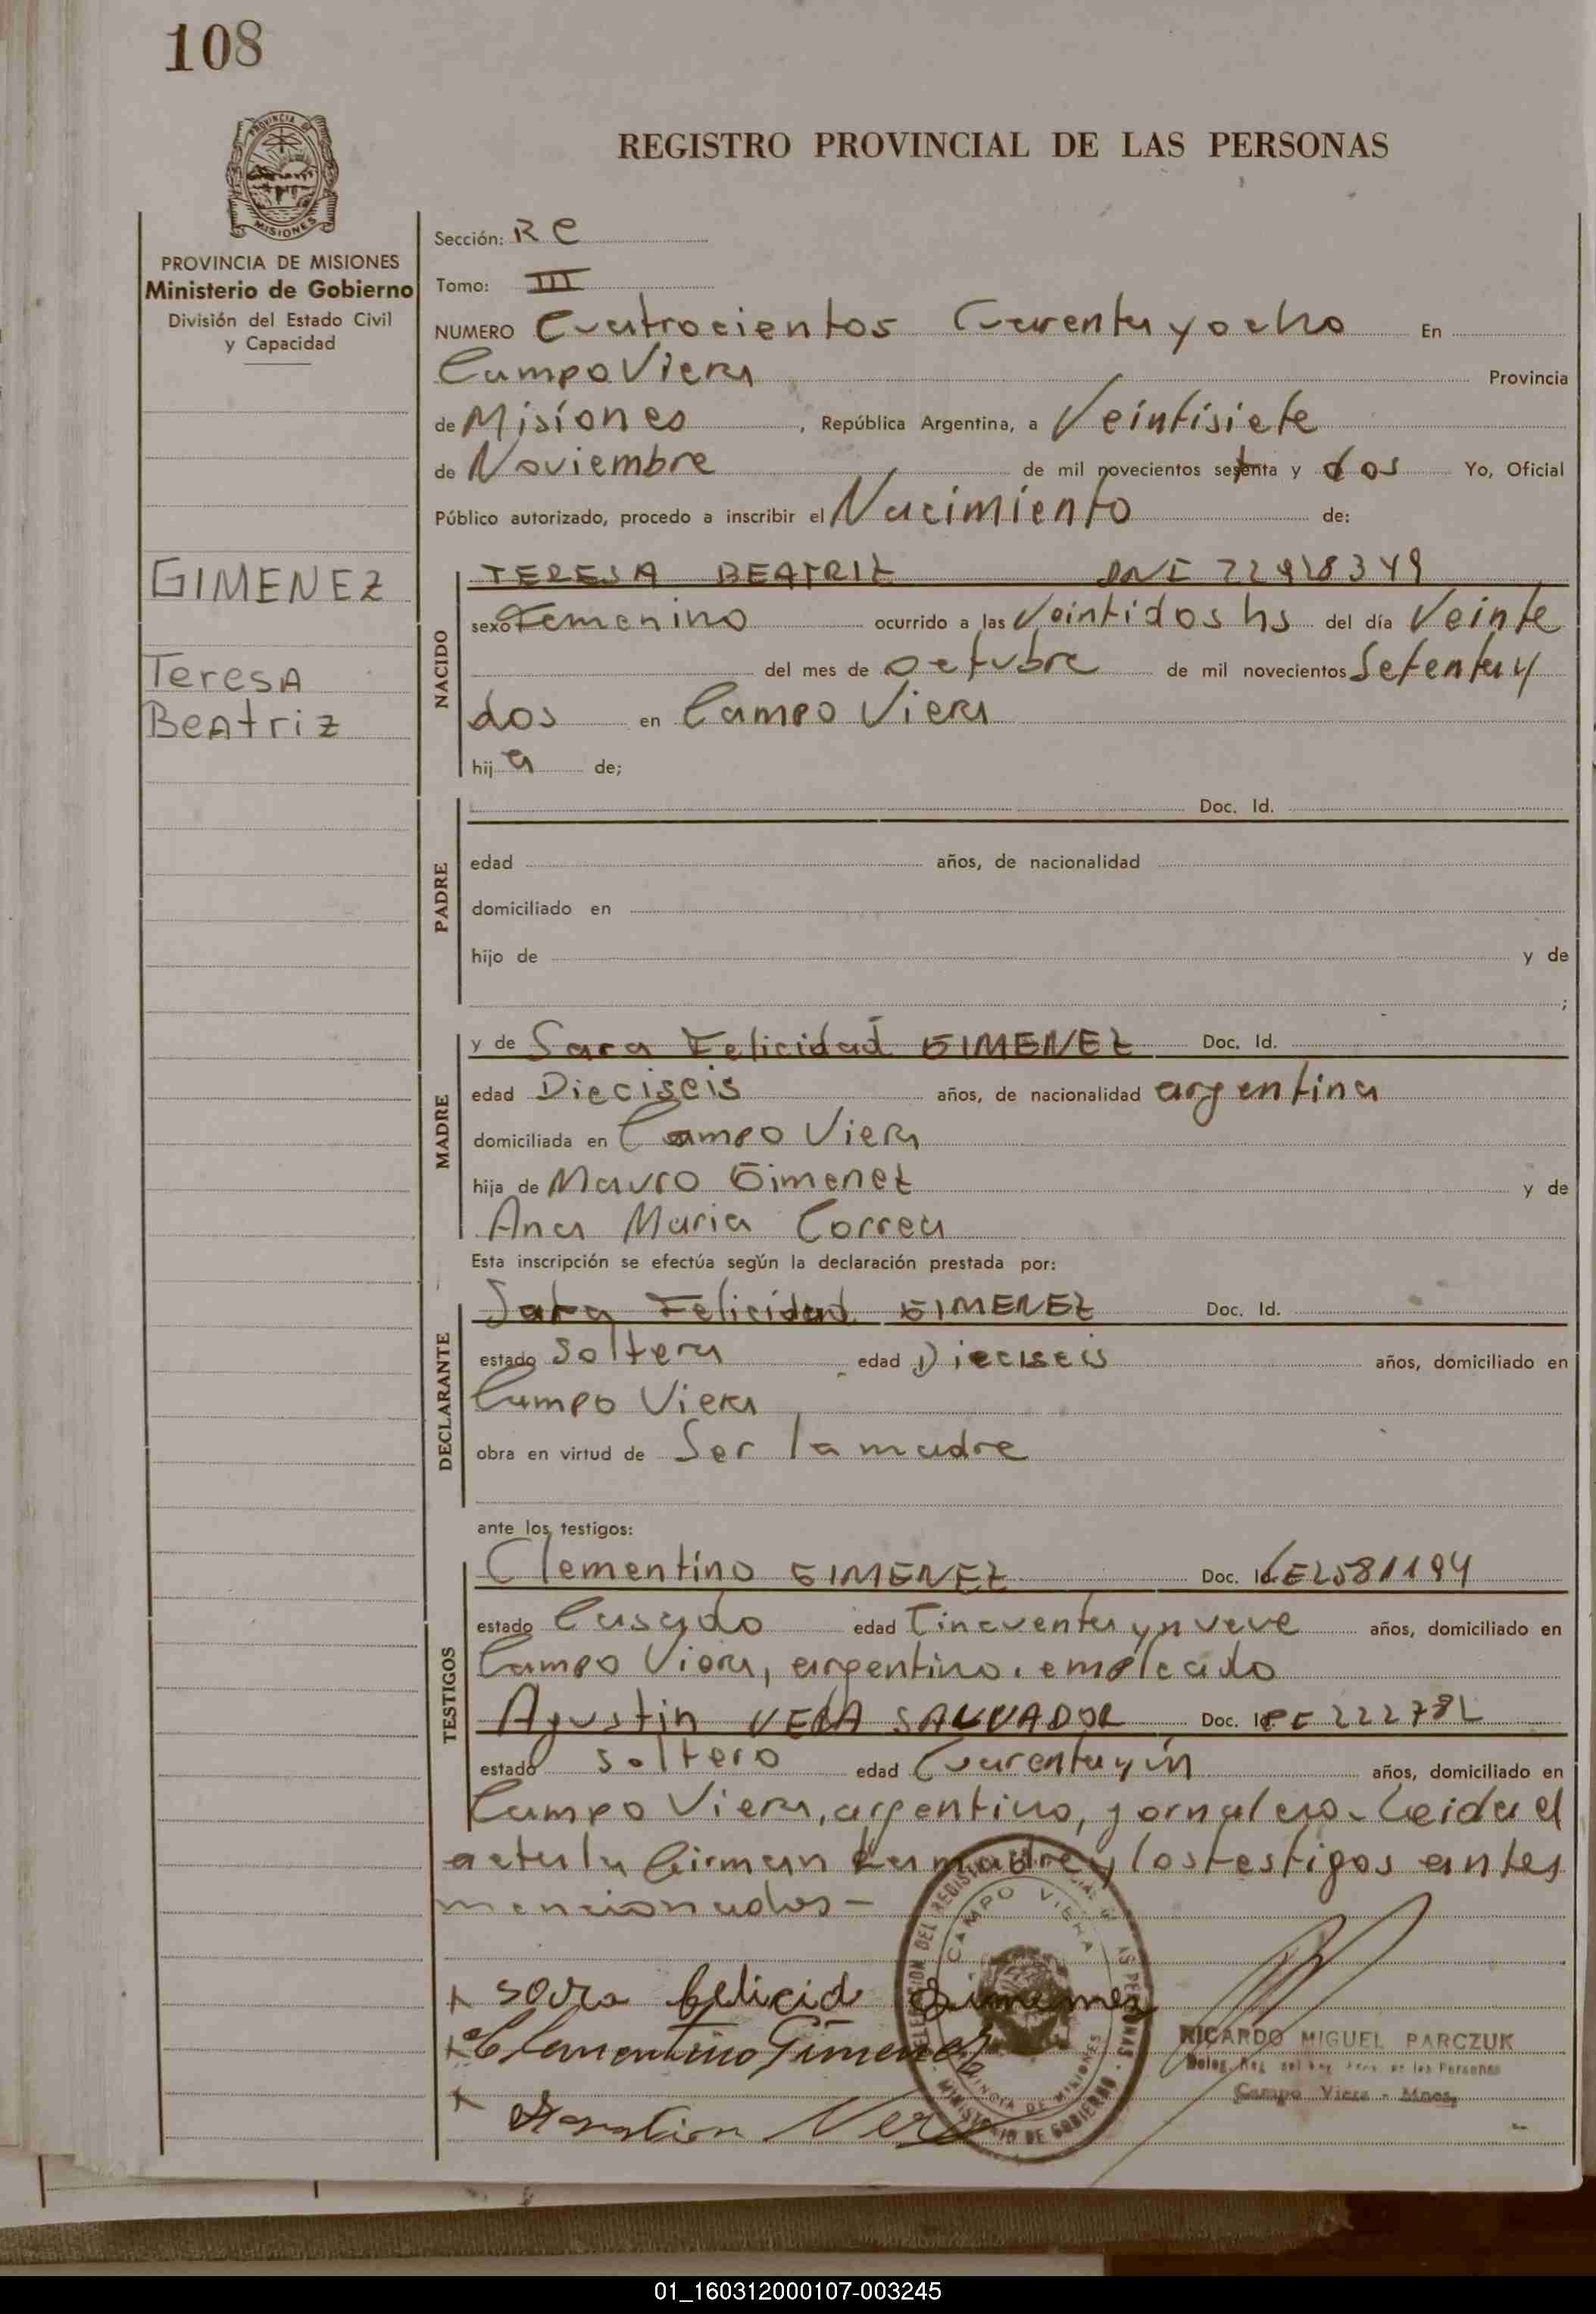 108
PROVINCIA DE
MISIONES
REGISTRO PROVINCIAL DE LAS PERSONAS
PROVINCIA DE MISIONES
Ministerio de Gobierno
División del Estado Civil
y Capacidad
GIMENEZ
Teresa
Beatriz
Sección: R C
Tomo: III
NUMERO Cuatrocientos Cuarenta y ocho En
Campo Viera Provincia
de Misiones, República Argentina, a Veintisiete
de Noviembre de mil novecientos setenta y dos Yo, Oficial
Público autorizado, procedo a inscribir el Nacimiento de:
NACIDO
TERESA BEATRIZ DNI 22918349
sexo Femenino ocurrido a las Veintidos hs del día Veinte
del mes de octubre de mil novecientos Setenta y
dos en Campo Viera
hij a de;
PADRE
Doc. Id.
edad años, de nacionalidad
domiciliado en
hijo de y de
;
MADRE
y de Sara Felicidad GIMENEZ Doc. Id.
edad Dieciseis años, de nacionalidad argentina
domiciliada en Campo Viera
hija de Mauro Gimenez y de
Ana Maria Correa
Esta inscripción se efectúa según la declaración prestada por:
DECLARANTE
Sara Felicidad GIMENEZ Doc. Id.
estado Soltera edad Dieciseis años, domiciliado en
Campo Viera
obra en virtud de Ser la madre
ante los testigos:
TESTIGOS
Clementino GIMENEZ Doc. Id. LE2581194
estado Casado edad Cincuenta y nueve años, domiciliado en
Campo Viera, argentino, empleado
Agustin VERA SALVADOR Doc. Id.
estado soltero edad Cuarenta y un años, domiciliado en
Campo Viera, argentino, jornalero - Leida el
acta la firman la madre y los testigos antes
mencionados -
x sara felicid Gimenez
x Clementino Gimenez
x Agustin Vera
DELEGACION DEL REGISTRO PERSONAS
CAMPO VIERA
PROVINCIA DE MISIONES
MINISTERIO DE GOBIERNO
RICARDO MIGUEL PARCZUK
Deleg. Reg. de las Personas
Campo Viera - Mnes.
01_160312000107-003245